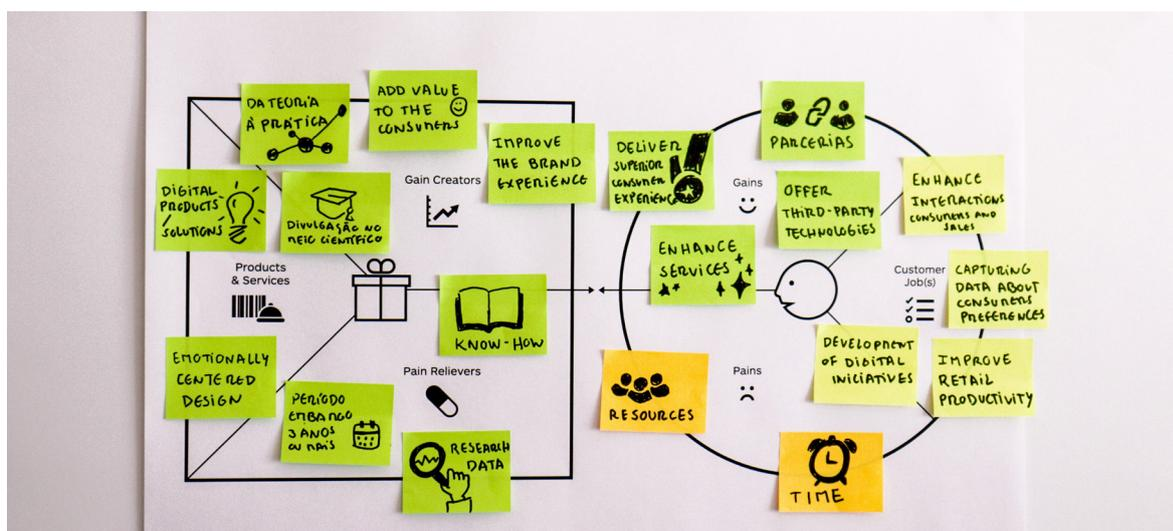 DA TEORIA
À PRÁTICA
ADD VALUE
TO THE
CONSUMERS
IMPROVE
THE BRAND
EXPERIENCE
DIGITAL
PRODUCTS
/
SOLUTIONS
DIVULGAÇÃO NO
MEIO CIENTÍFICO
Gain Creators
Products
& Services
KNOW-HOW
EMOTIONALLY
CENTERED
DESIGN
PERÍODO
EMBARGO
3 ANOS
OU MAIS
Pain Relievers
RESEARCH
DATA
DELIVER
SUPERIOR
CONSUMER
EXPERIENCE
PARCERIAS
Gains
OFFER
THIRD-PARTY
TECHNOLOGIES
ENHANCE
INTERACTIONS
CONSUMERS AND
SALES
ENHANCE
SERVICES
Customer
Job(s)
CAPTURING
DATA ABOUT
CONSUMERS
PREFERENCES
DEVELOPMENT
OF DIGITAL
INICIATIVES
IMPROVE
RETAIL
PRODUCTIVITY
RESOURCES
Pains
TIME